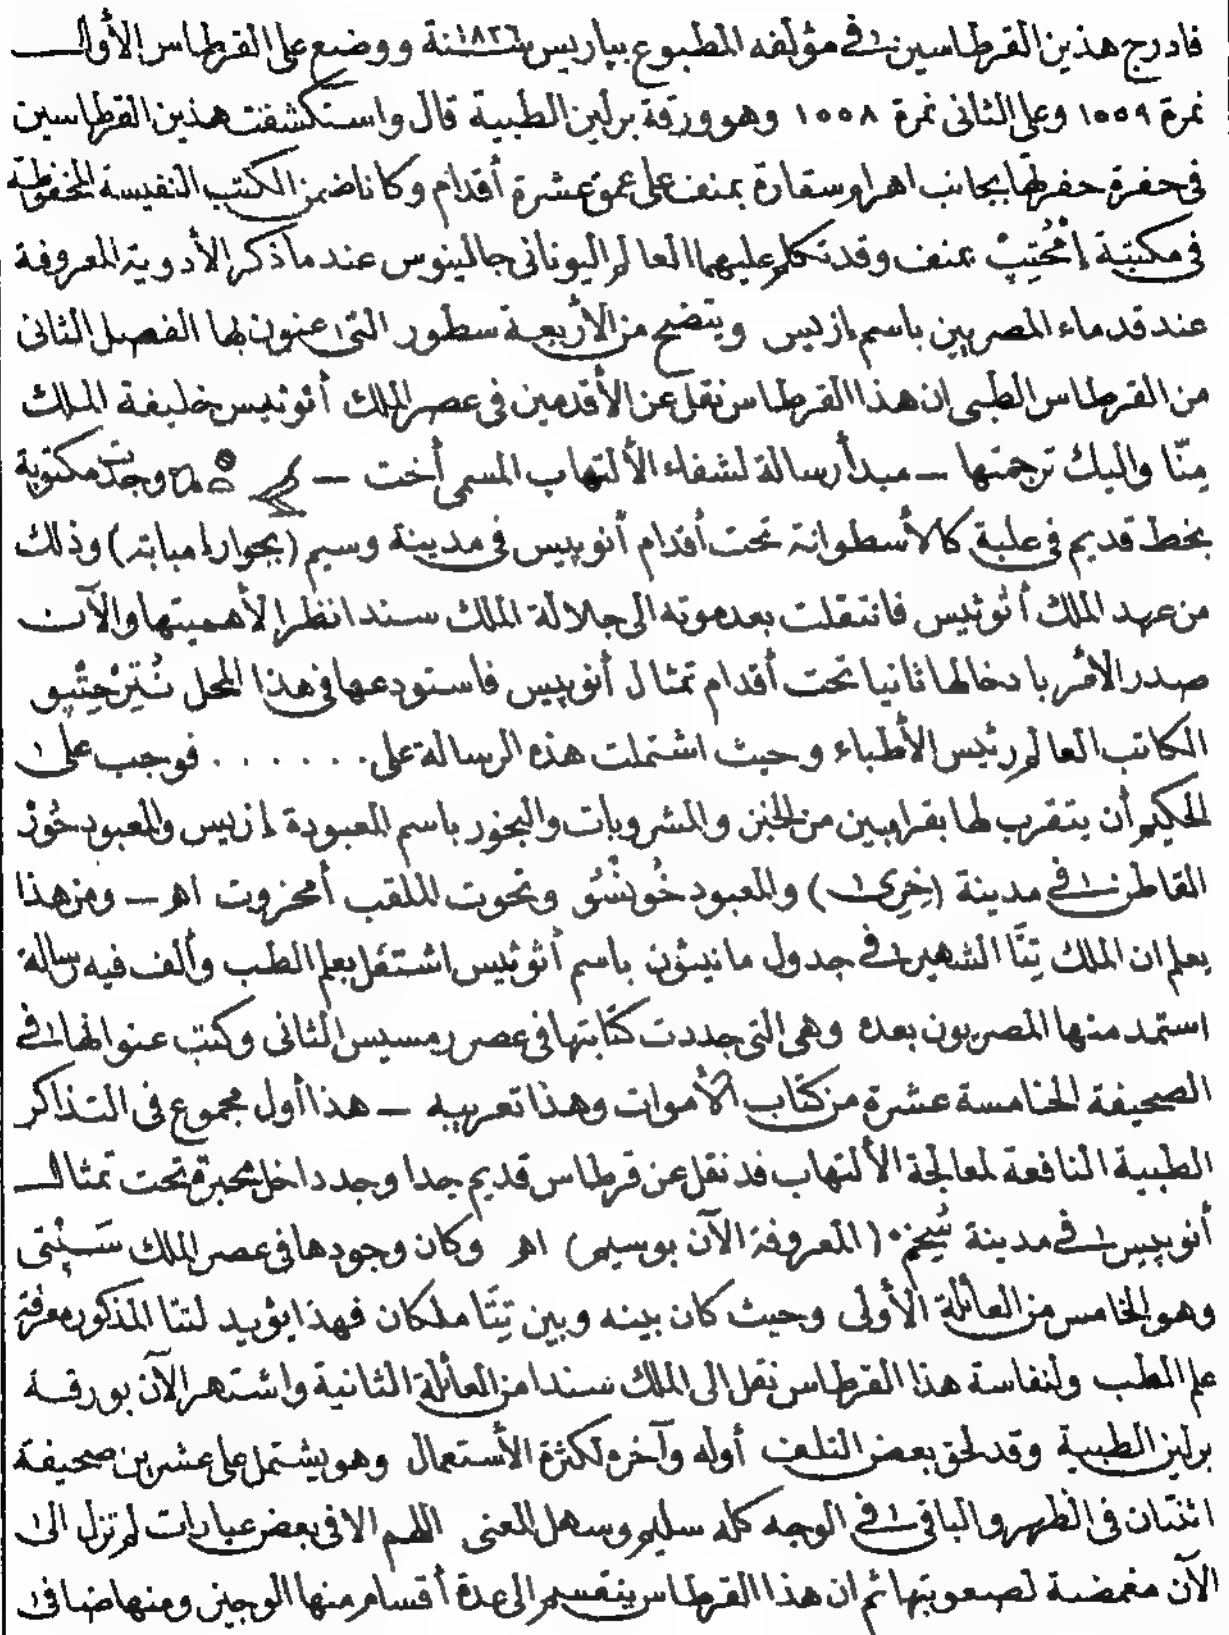 فادرج هذين القرطاسين في مؤلفه المطبوع بباريس سنة ١٨٢٦ ووضع على القرطاس الأول
نمرة ١٥٥٩ وعلى الثانى نمرة ١٥٥٨ وهو ورقة برلين الطبية قال واستكشفت هذين القرطاسين
فى حفرة حفرتها بجانب اهرام سقارة بمنف على عمق عشرة أقدام وكانا ضمن الكتب النفيسة المحفوظة
فى مكتبة إمْحُتِبْ بمنف وقد تكلم عليهما العالم اليونانى جالينوس عند ما ذكر الأدوية المعروفة
عند قدماء المصريين باسم إزيس ويتضح من الأربعة سطور التى عنون بها الفصل الثانى
من القرطاس الطبى ان هذا القرطاس نقل عن الأقدمين فى عصر الملك أثوثيس خليفة الملك
مِنّا واليك ترجمتها — مبدأ رسالة لشفاء الألتهاب المسمى أخت — وجدت مكتوبة
بخط قديم فى علبة كالأسطوانة تحت أقدام أنوبيس فى مدينة وسيم (بجوار إمبابة) وذلك
من عهد الملك أثوثيس فانتقلت بعد موته الى جلالة الملك سندا نظرا لأهميتها والآن
صدر الأمر بادخالها ثانيا تحت أقدام تمثال أنوبيس فاستودعها فى هذا المحل نُتِرْحِتْبو
الكاتب العالم رئيس الأطباء وحيث اشتملت هذه الرسالة على . . . . . . فوجب على
الحكيم أن يتقرب لها بقرابين من الخبز والمشروبات والبخور باسم المعبودة إزيس والمعبود حُوزْ
القاطن فى مدينة (خِرِى) والمعبود خُونْسُو وتحوت الملقب أمحزوت اهـ — ومن هذا
يعلم ان الملك تِتَّا الشهير فى جدول مانيثون باسم أثوثيس اشتغل بعلم الطب وألف فيه رسالة
استمد منها المصريون بعده وهى التى جددت كتابتها فى عصر رمسيس الثانى وكتب عنوانها فى
الصحيفة الخامسة عشرة من كتاب الأموات وهذا تعريبه — هذا أول مجموع فى التذاكر
الطبية النافعة لمعالجة الألتهاب قد نقل عن قرطاس قديم جدا وجد داخل محبرة تحت تمثال
أنوبيس فى مدينة سُيخِمْ (المعروفة الآن بوسيم) اهـ وكان وجودها فى عصر الملك سَپْتِى
وهو الخامس من العائلة الأولى وحيث كان بينه وبين تِتَّا ملكان فهذا يؤيد لتتا المذكور معرفة
علم الطب ولنفاسة هذا القرطاس نقل الى الملك سندا من العائلة الثانية واشتهر الآن بورقة
برلين الطبية وقد لحق بعض التلف أوله وآخره لكثرة الأستعمال وهو يشتمل على عشرين صحيفة
اثنتان فى الظهر والباقى فى الوجه كله سليم وسهل المعنى اللهم الا فى بعض عبارات لم تزل الى
الآن مغمضة لصعوبتها ثم ان هذا القرطاس ينقسم الى عدة أقسام منها الوجيز ومنها ضافى